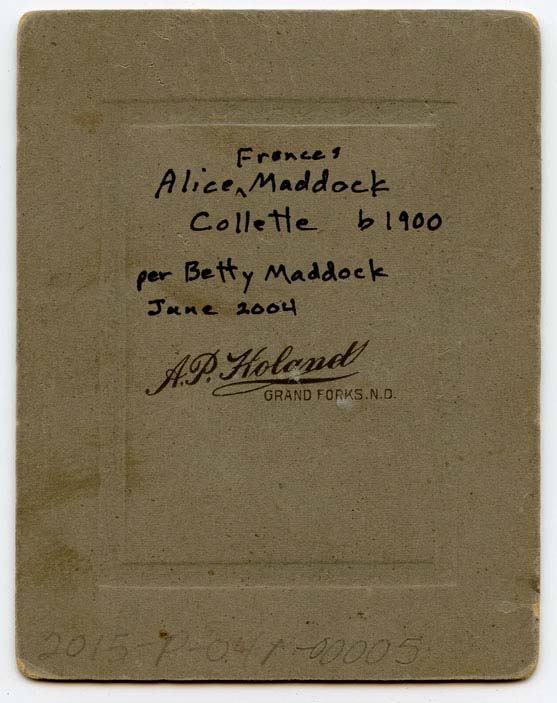 Frances
Alice ^ Maddock
Collette b 1900
per Betty Maddock
June 2004
A.P. Holand
GRAND FORKS. N.D.
2015-P-041-00005